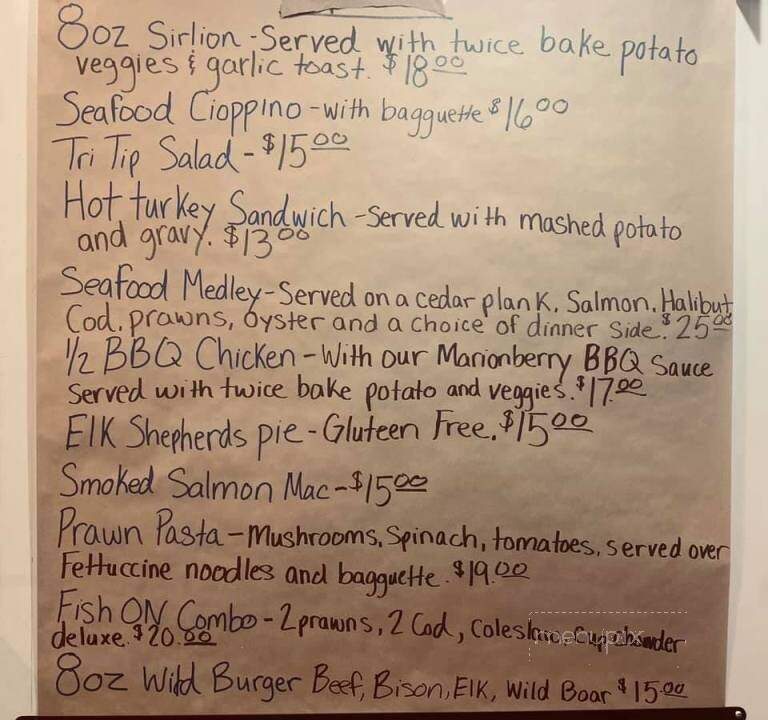 8oz Sirlion - Served with twice bake potato
veggies & garlic toast. $18.00
Seafood Cioppino - with bagguette $16.00
Tri Tip Salad - $15.00
Hot turkey Sandwich - Served with mashed potato
and gravy. $13.00
Seafood Medley - Served on a cedar plank. Salmon. Halibut
Cod. prawns, oyster and a choice of dinner side. $25.00
1/2 BBQ Chicken - With our Marionberry BBQ Sauce
Served with twice bake potato and veggies. $17.00
Elk Shepherds pie - Gluteen Free. $15.00
Smoked Salmon Mac - $15.00
Prawn Pasta - Mushrooms, Spinach, tomatoes, served over
Fettuccine noodles and bagguette. $19.00
Fish ON Combo - 2 prawns, 2 Cod, Coleslaw, Cup Chowder
deluxe. $20.00
8oz Wild Burger Beef, Bison, Elk, Wild Boar $15.00